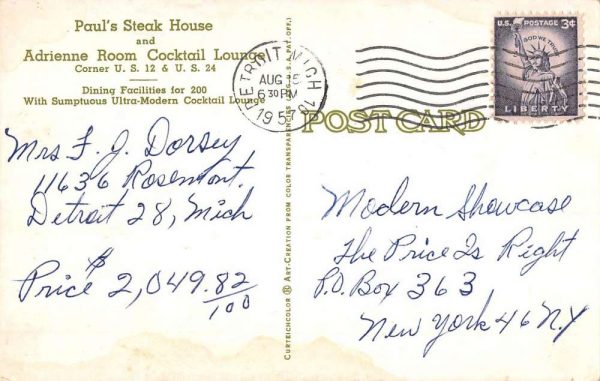 Paul's Steak House
and
Adrienne Room Cocktail Lounge
Corner U. S. 12 & U. S. 24
Dining Facilities for 200
With Sumptuous Ultra-Modern Cocktail Lounge
Mrs F. J. Dorsey
11636 Rosemont.
Detroit 28, Mich
Price $2,049.82/100
CURTEICHCOLOR ® ART-CREATION FROM COLOR TRANSPARENCIES (REG. U.S.A. PAT. OFF.)
DETROIT, MICH
AUG 5
630 PM
POST CARD
U.S. POSTAGE 3¢
IN GOD WE TRUST
LIBERTY
Modern Showcase
The Price Is Right
P.O. Box 363
New York 46 N.Y